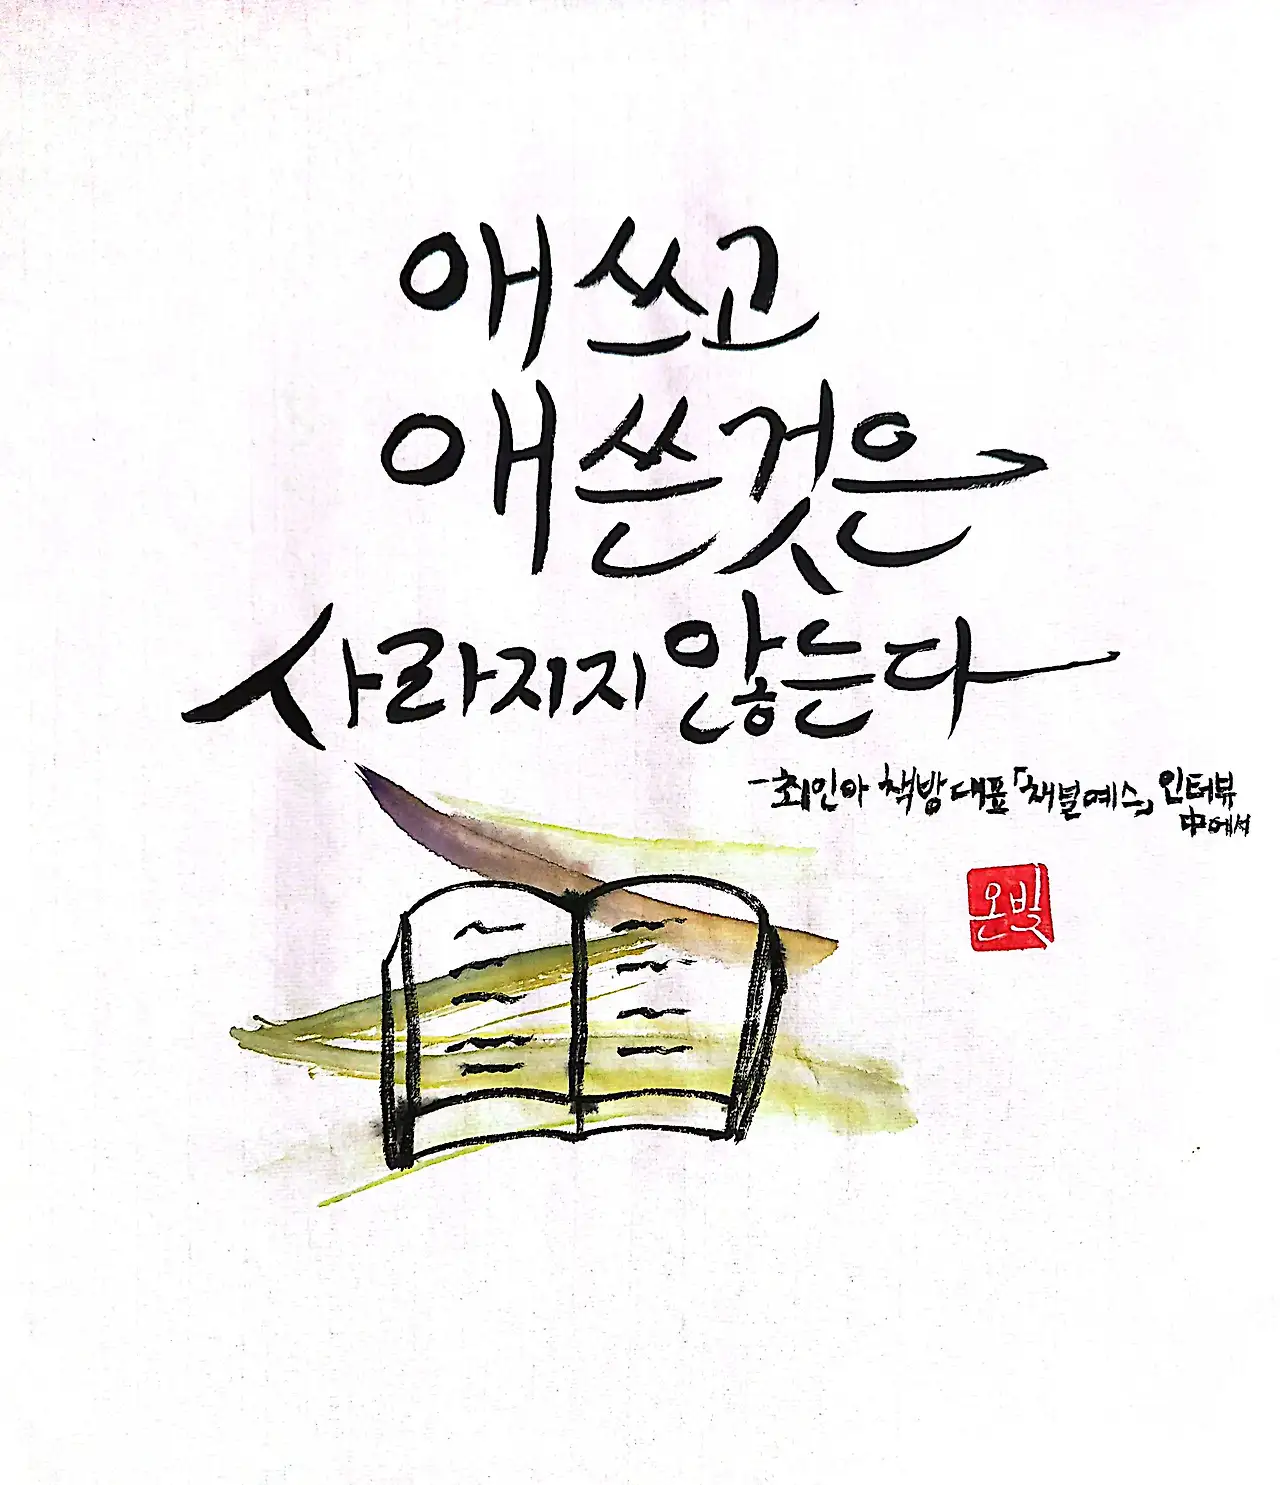 애쓰고
애쓴것은
사라지지 않는다
-최인아 책방 대표 「채널예스」 인터뷰
中에서
온빛